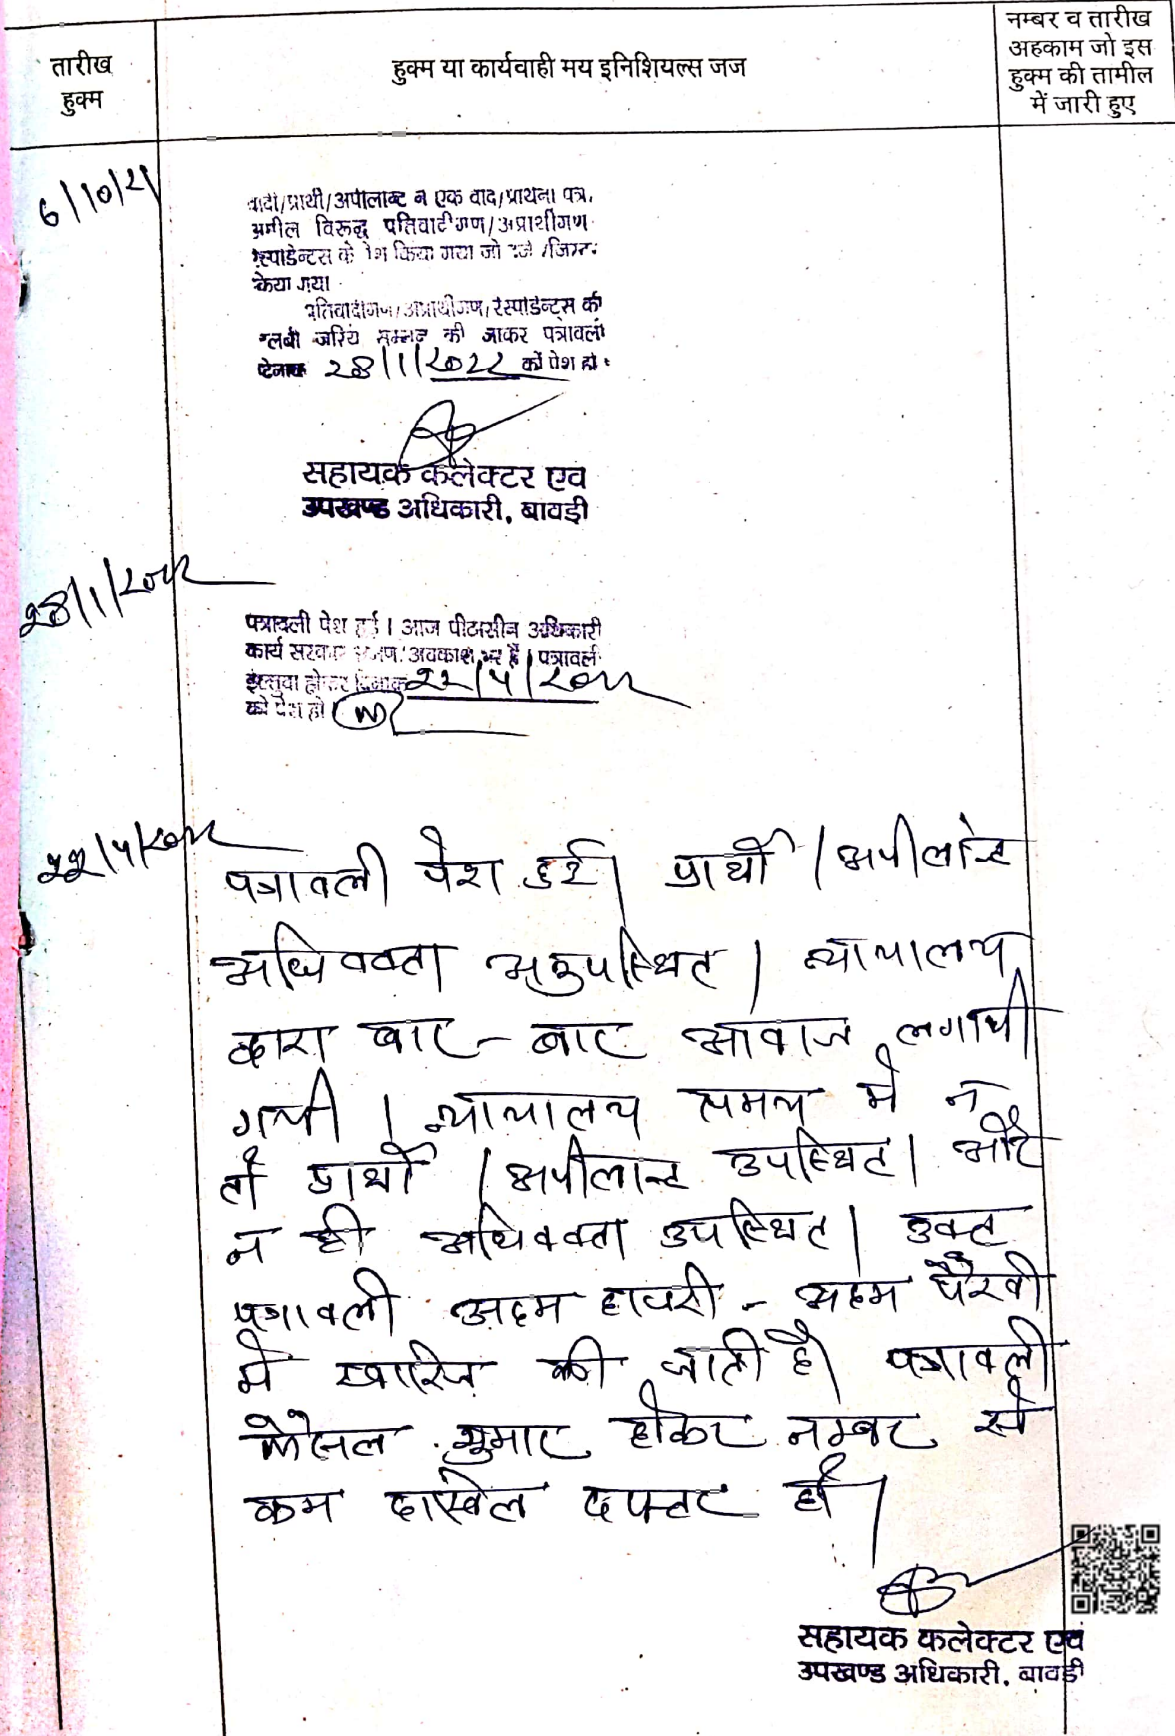 तारीख
हुक्म
हुक्म या कार्यवाही मय इनिशियल्स जज
नम्बर व तारीख
अहकाम जो इस
हुक्म की तामील
में जारी हुए
6/10/21
वादी/प्रार्थी/अपीलान्ट न एक वाद/प्रार्थना पत्र.
अपील विरूद्ध प्रतिवादीगण/अप्रार्थीगण
रेस्पाडेन्टस के पेश किया गया जो दर्ज रजिस्टर
किया गया
प्रतिवादीगण/अप्रार्थीगण/रेस्पाडेन्ट्स की
तलबी जरिये सम्मन की जाकर पत्रावली
दिनांक 28/1/2022 को पेश हो
सहायक कलेक्टर एवं
उपखण्ड अधिकारी, बावड़ी
28/1/2022
पत्रावली पेश हुई। आज पीठासीन अधिकारी
कार्य अवकाश पर है। पत्रावली
होकर दिनांक 22/4/2022
को पेश हो
22/4/2022
पत्रावली पेश हुई। प्रार्थी/अपीलान्ट
अधिवक्ता अनुपस्थित। न्यायालय
द्वारा बार-बार आवाज लगायी
गयी। न्यायालय समय में न
तो प्रार्थी/अपीलान्ट उपस्थित। और
न ही अधिवक्ता उपस्थित। उक्त
पत्रावली अदम हाजरी - अदम पैरवी
में खारिज की जाती है। पत्रावली
फैसल शुमार होकर नम्बर से
कम दाखिल दफ्तर हो।
सहायक कलेक्टर एवं
उपखण्ड अधिकारी, बावड़ी